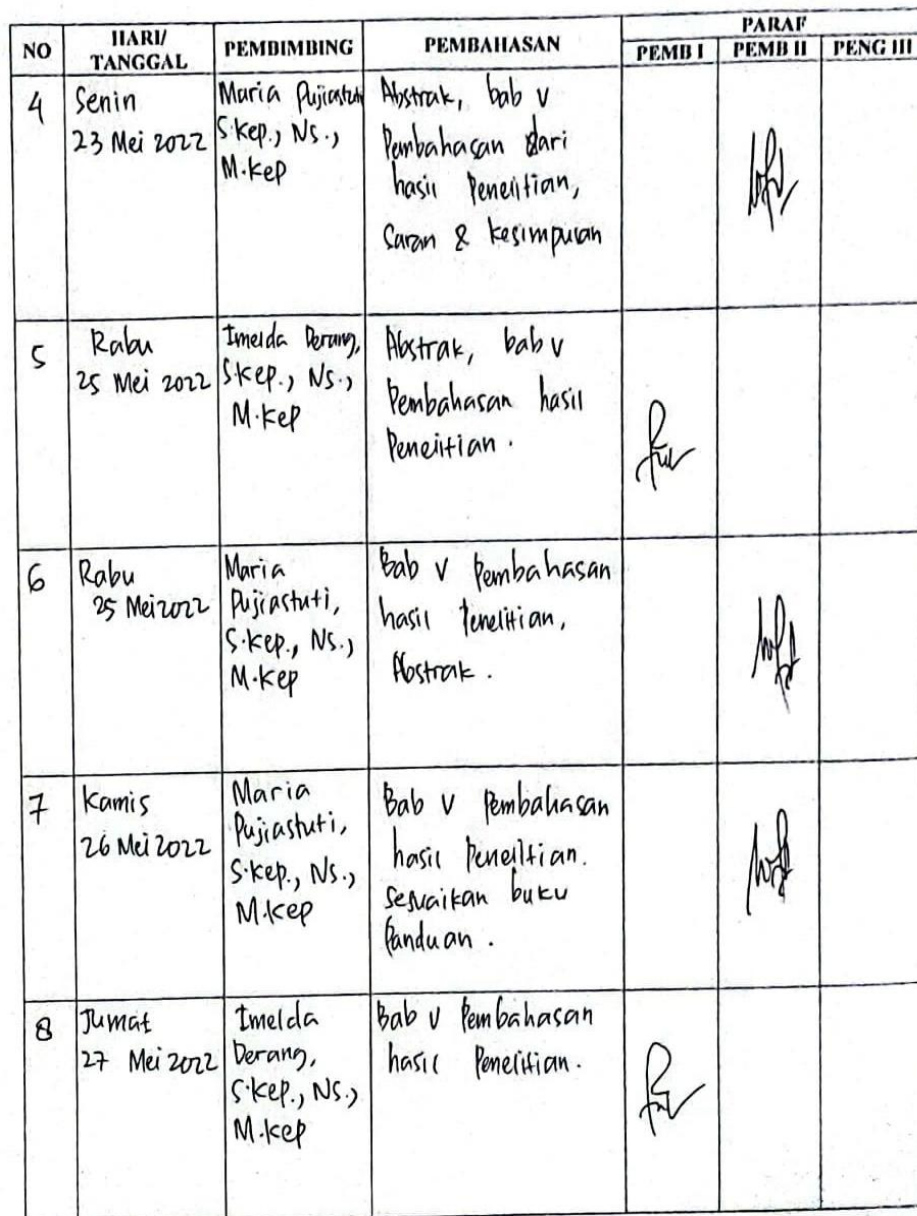 NO HARI/ TANGGAL PEMBIMBING PEMBAHASAN PARAF
PEMB I PEMB II PENG III
4
Senin
23 Mei 2022
Maria Pujiastuti
S.Kep., Ns.,
M.Kep
Abstrak, bab V
Pembahasan dari
hasil Penelitian,
Saran & kesimpulan
5
Rabu
25 Mei 2022
Imelda Derang,
S.Kep., Ns.,
M.Kep
Abstrak, bab V
Pembahasan hasil
Penelitian.
6
Rabu
25 Mei 2022
Maria
Pujiastuti,
S.Kep., Ns.,
M.Kep
Bab V Pembahasan
hasil Penelitian,
Abstrak.
7
Kamis
26 Mei 2022
Maria
Pujiastuti,
S.Kep., Ns.,
M.Kep
Bab V Pembahasan
hasil Penelitian.
Sesuaikan buku
Panduan.
8
Jumat
27 Mei 2022
Imelda
Derang,
S.Kep., Ns.,
M.Kep
Bab V Pembahasan
hasil Penelitian.